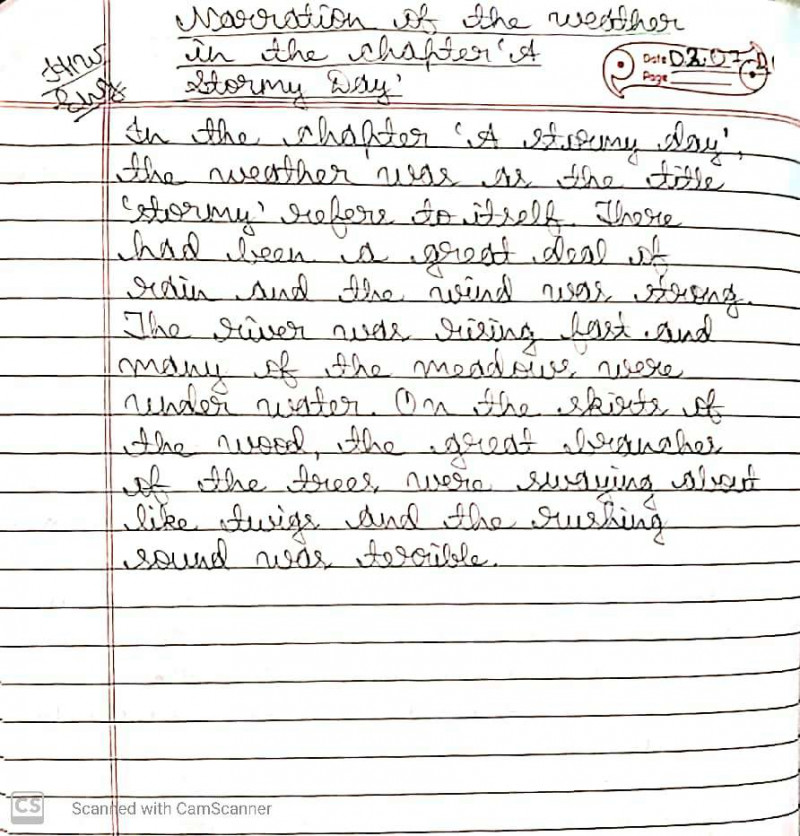 Narration of the weather
in the chapter 'A
Stormy Day'
H/W
Date 02.07
Page
In the chapter 'A stormy day',
the weather was as the title
'stormy' refers to itself. There
had been a great deal of
rain and the wind was strong.
The river was rising fast and
many of the meadows were
under water. On the skirts of
the wood, the great branches
of the trees were swaying about
like twigs and the rushing
sound was terrible.
CS Scanned with CamScanner